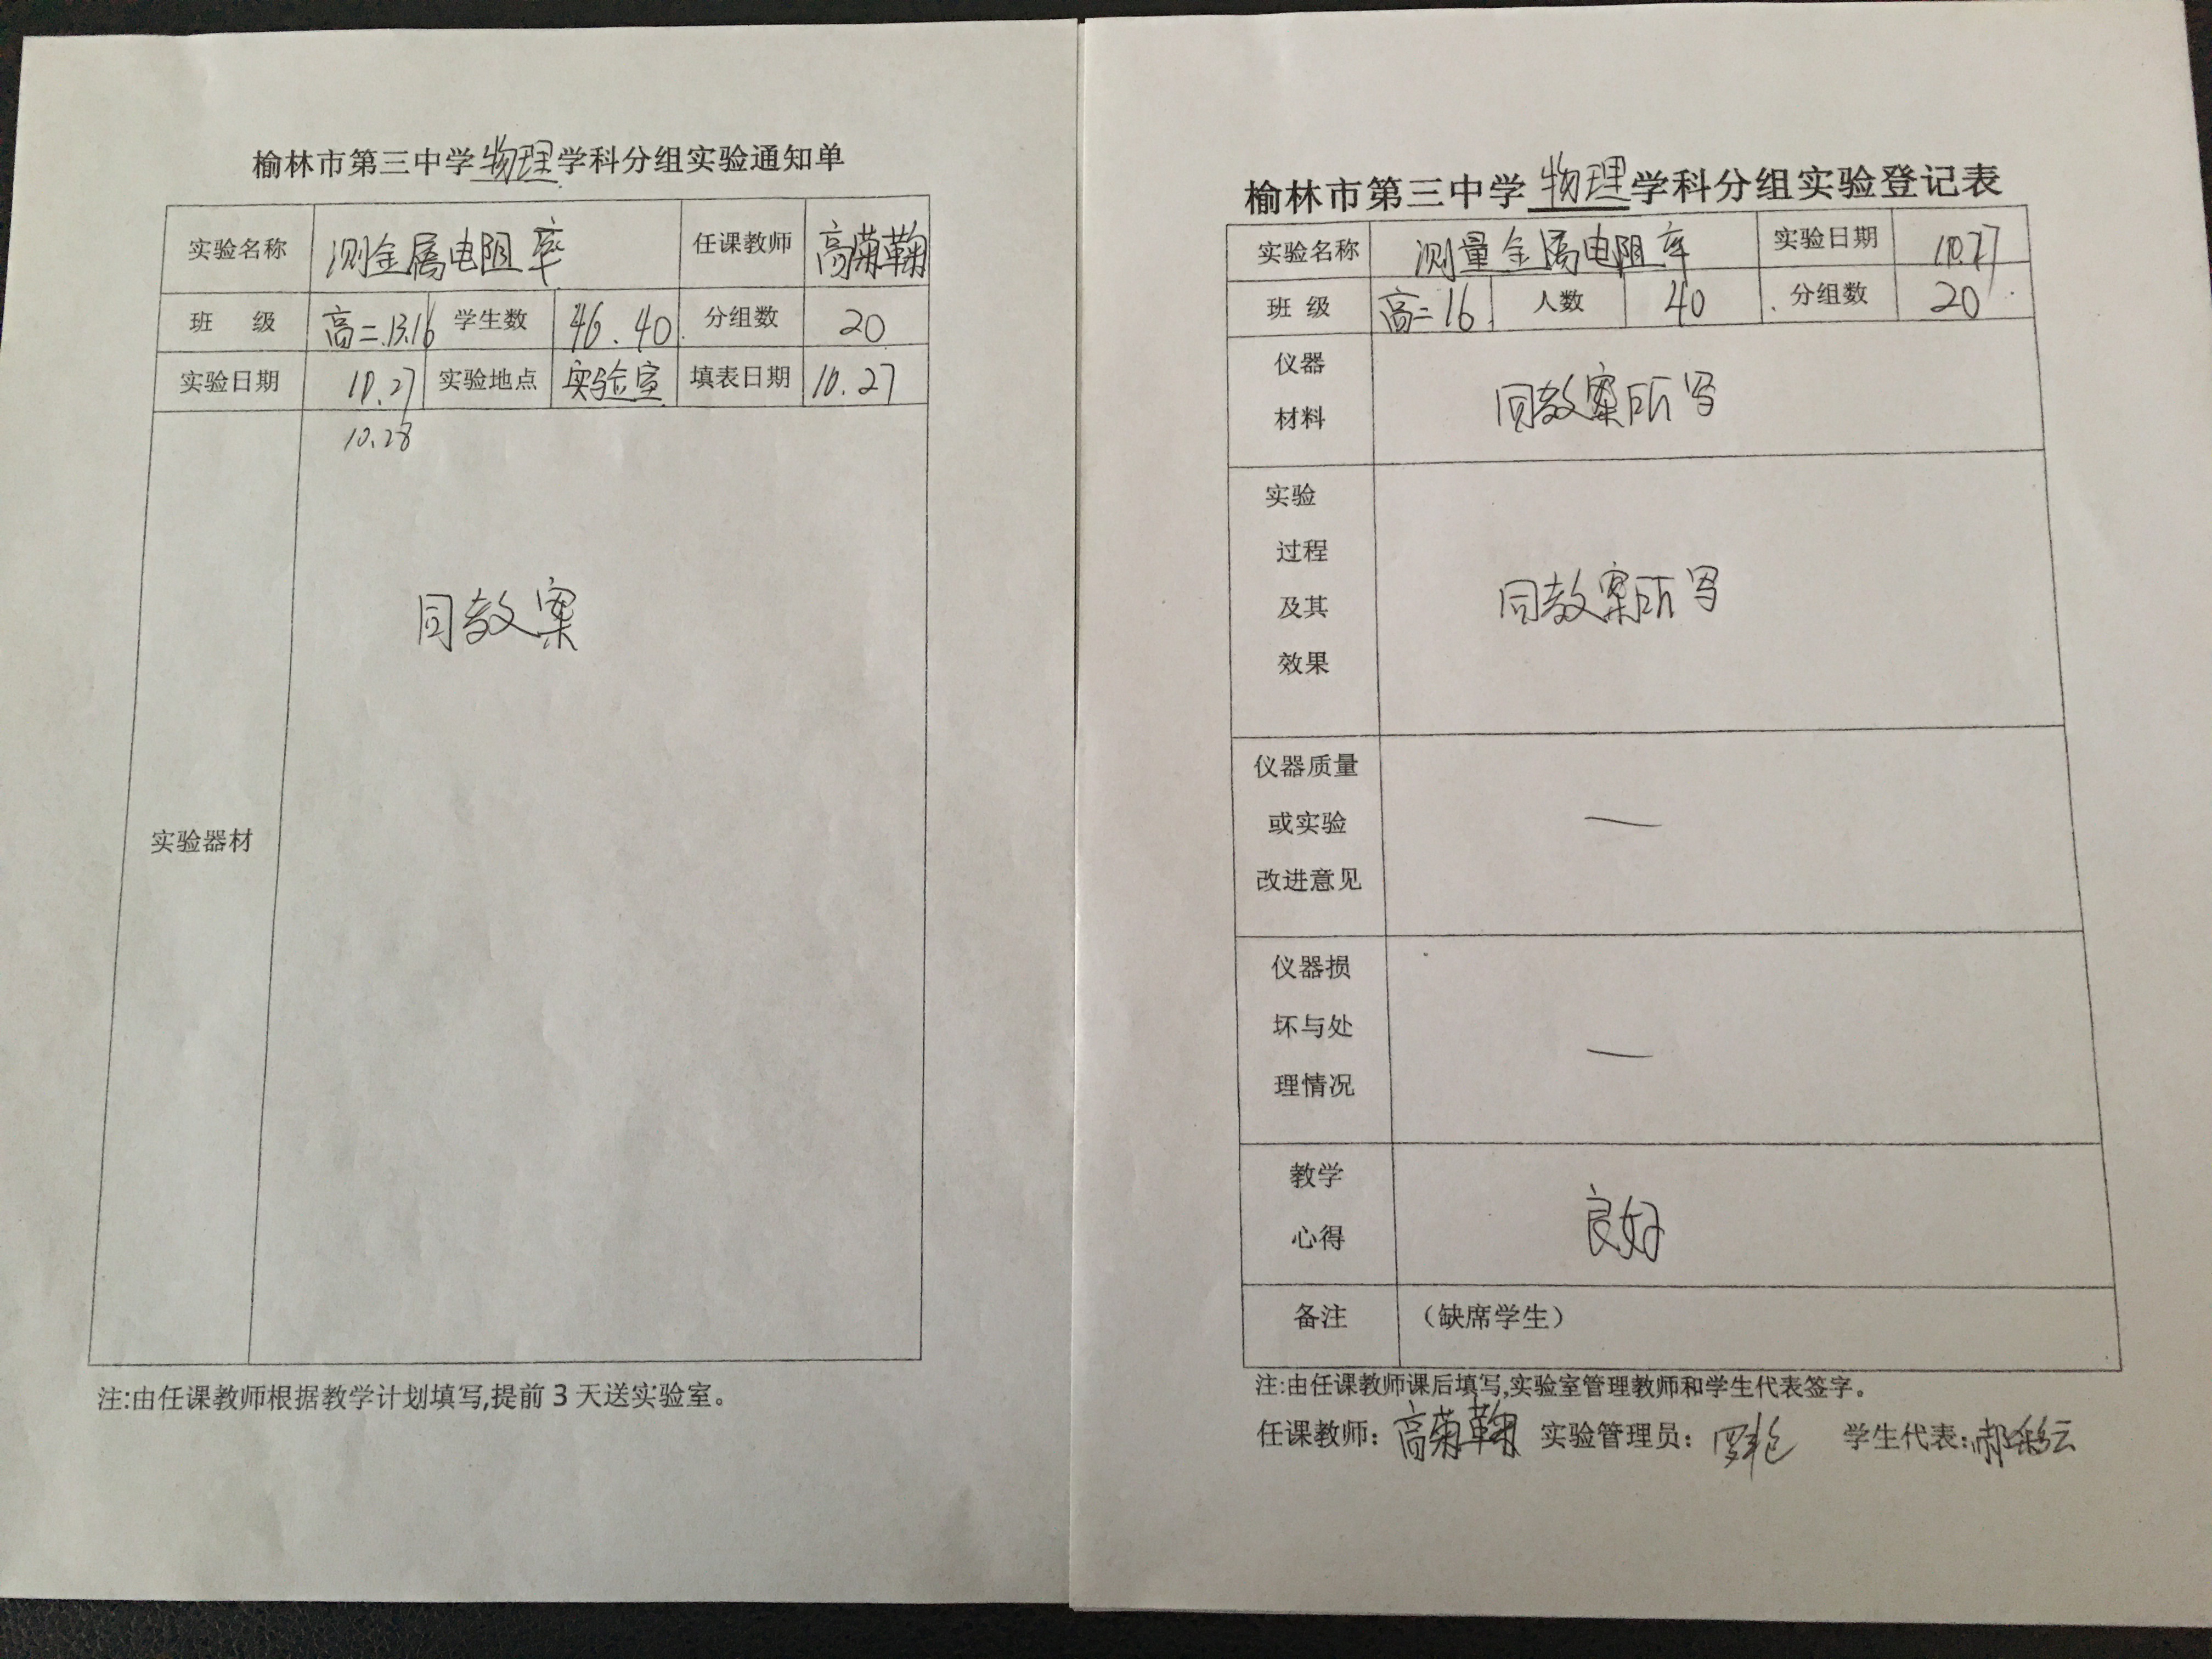 榆林市第三中学物理学科分组实验通知单
实验名称 测金属电阻率 任课教师 高菊鞠
班 级 高二.13.16 学生数 46.40 分组数 20
实验日期 10.27 实验地点 实验室 填表日期 10.27
10.28
实验器材 同教案
注:由任课教师根据教学计划填写,提前3天送实验室。
榆林市第三中学物理学科分组实验登记表
实验名称 测量金属电阻率 实验日期 10.27
班 级 高二16 人数 40 分组数 20
仪器
材料
同教案所写
实验
过程
及其
效果
同教案所写
仪器质量
或实验
改进意见
—
仪器损
坏与处
理情况
—
教学
心得
良好
备注 （缺席学生）
注:由任课教师课后填写,实验室管理教师和学生代表签字。
任课教师：高菊鞠 实验管理员： 学生代表：郝彩云